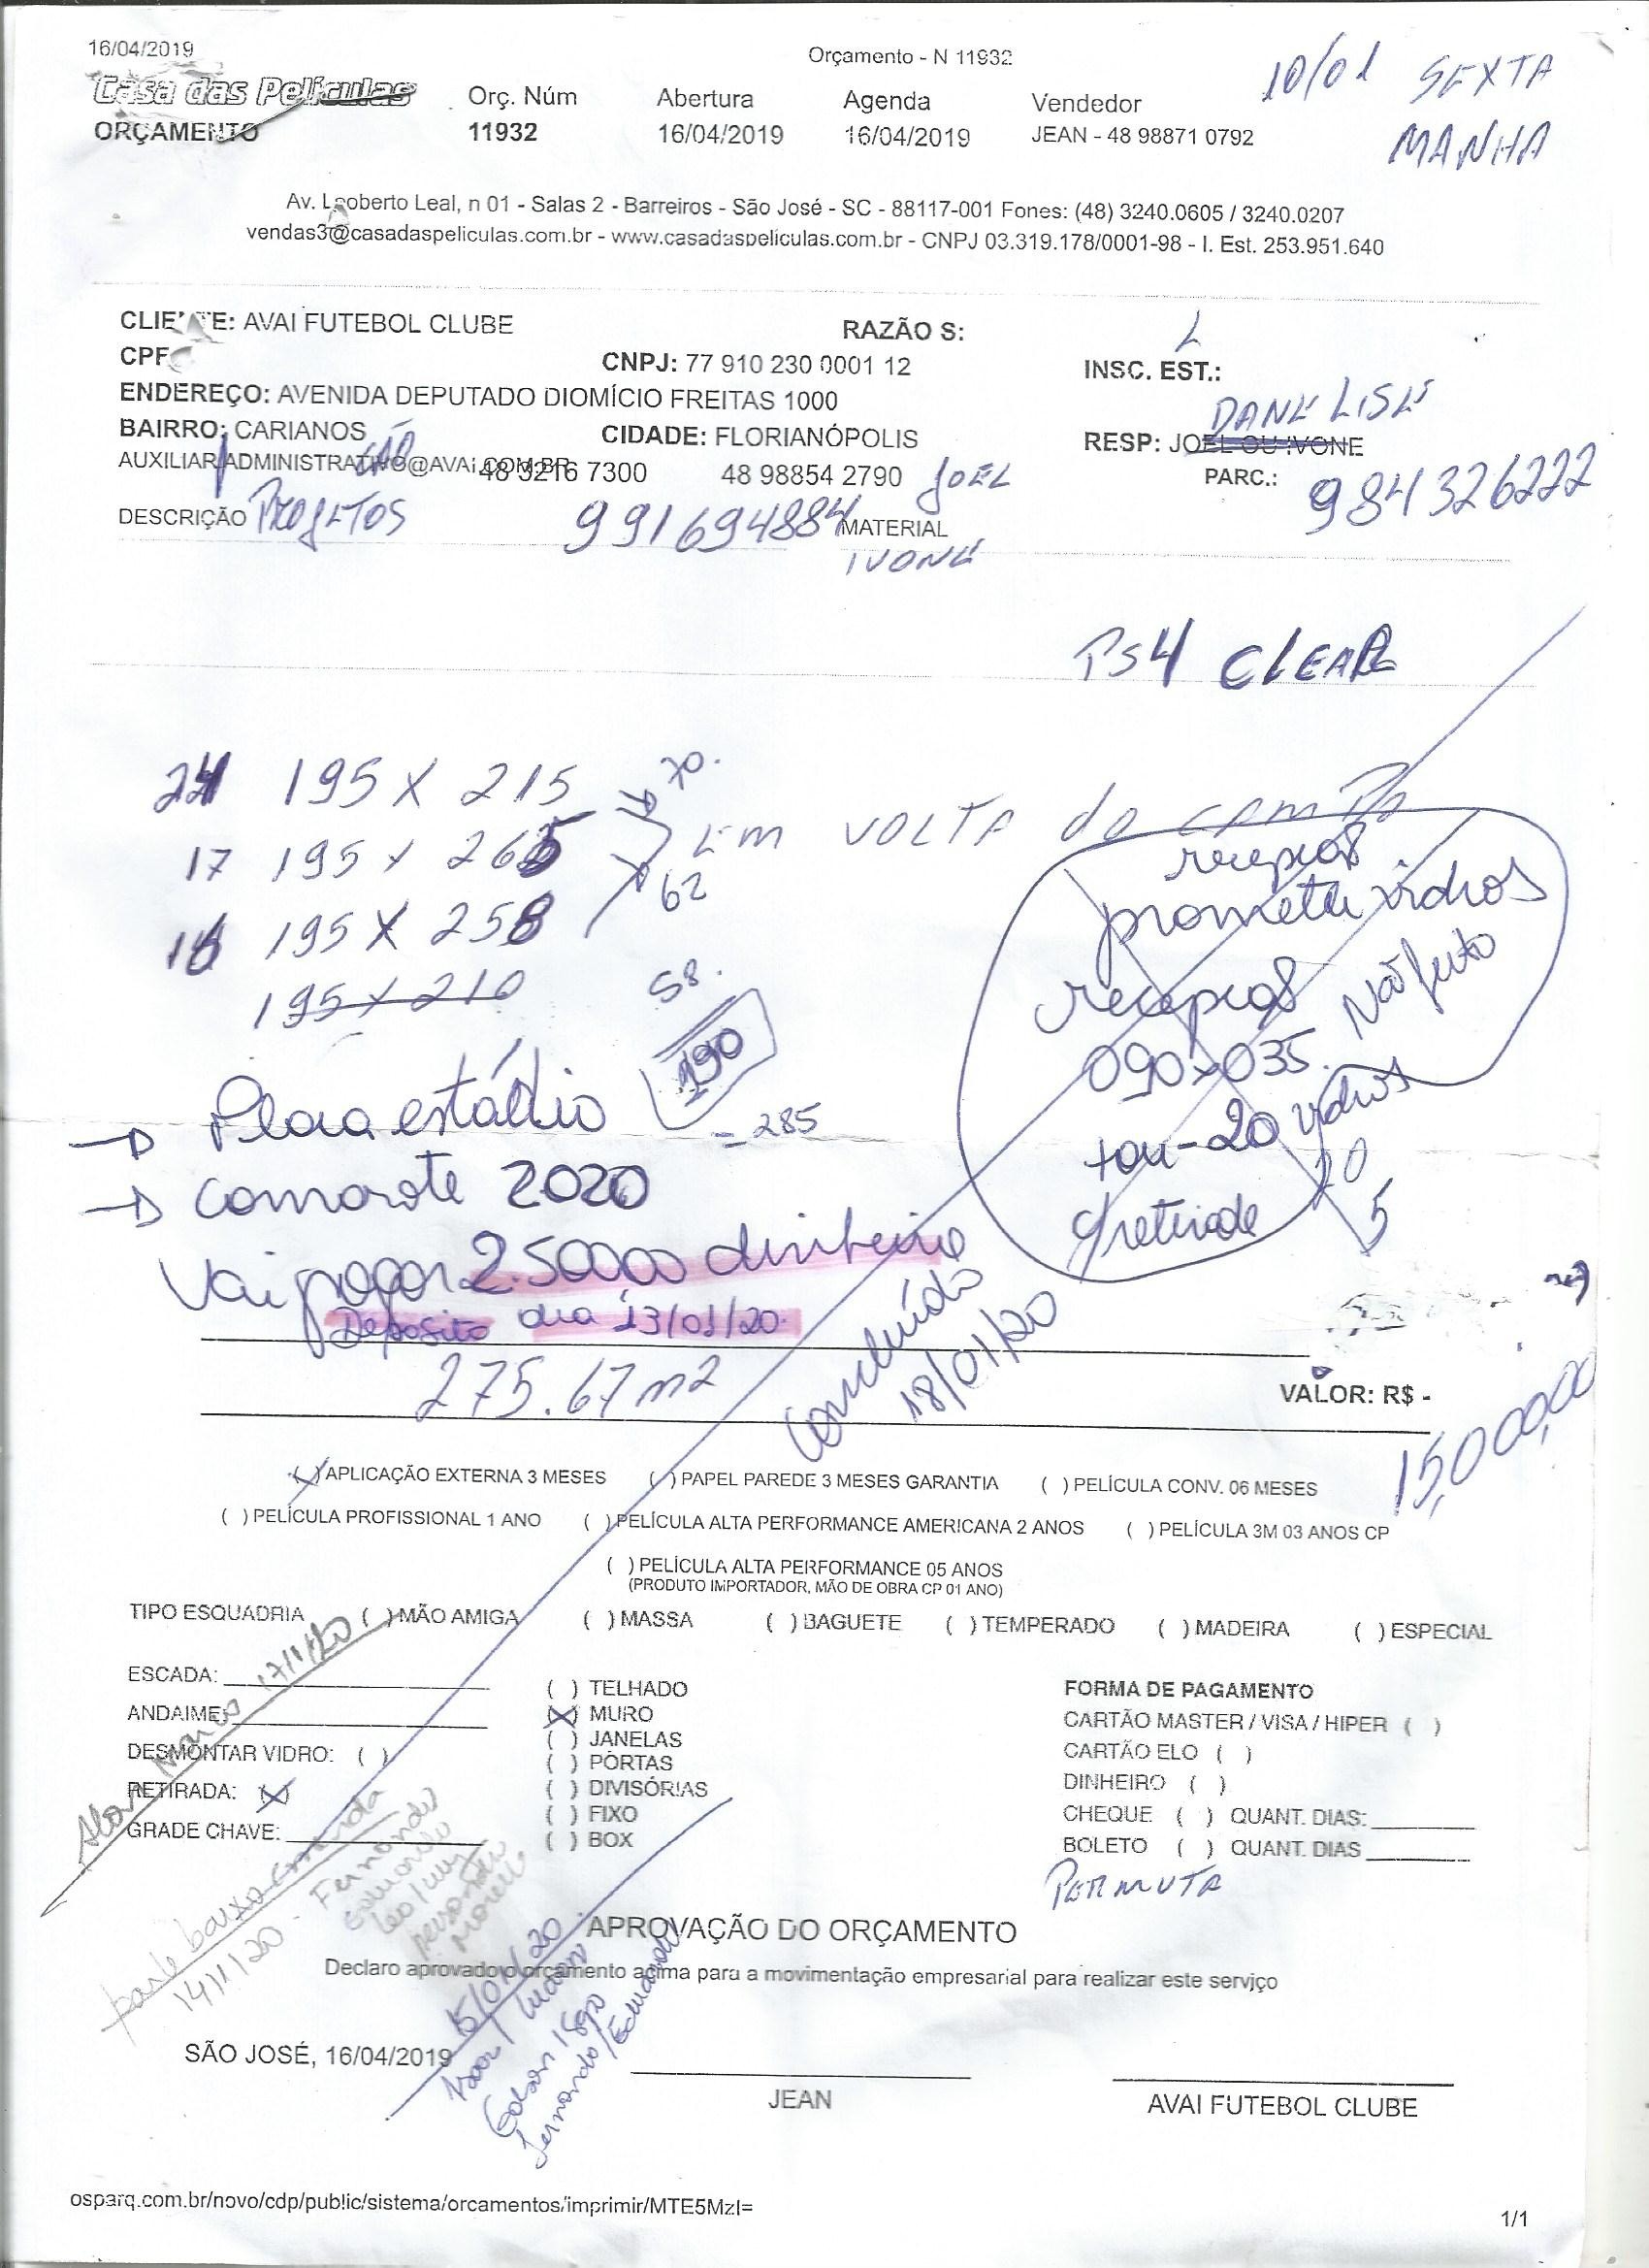 16/04/2019
Orçamento - N 11932
10/01 SEXTA
MANHA
Casa das Películas
ORÇAMENTO
Orç. Núm
11932
Abertura
16/04/2019
Agenda
16/04/2019
Vendedor
JEAN - 48 98871 0792
Av. Leoberto Leal, n 01 - Salas 2 - Barreiros - São José - SC - 88117-001 Fones: (48) 3240.0605 / 3240.0207
vendas3@casadaspeliculas.com.br - www.casadaspeliculas.com.br - CNPJ 03.319.178/0001-98 - I. Est. 253.951.640
CLIENTE: AVAI FUTEBOL CLUBE
RAZÃO S:
CPF
CNPJ: 77 910 230 0001 12
INSC. EST.:
ENDEREÇO: AVENIDA DEPUTADO DIOMÍCIO FREITAS 1000
DANELISE
BAIRRO: CARIANOS
CIDADE: FLORIANÓPOLIS
RESP: JOEL OU IVONE
AUXILIAR.ADMINISTRATIVO@AVAI.COM.BR
48 3216 7300
48 98854 2790 JOEL
PARC.:
984326222
DESCRIÇÃO PROJETOS
991694884
MATERIAL
IVONE
PS4 CLEAR
195 X 215
70.
17 195 x 265
EM VOLTA do CAMPO
62
195 X 258
195 x 210
58.
190
= 285
recepção
promete vidros
recepção Não feito
090 x 035
20 vidros
10
5
Placa estádio
Camarote 2020
Vai pagar 2.500,00 dinheiro
Deposito dia 13/01/20
275.67 m2
Concluído
18/01/20
VALOR: R$ -
15,000,00
(X) APLICAÇÃO EXTERNA 3 MESES
( ) PAPEL PAREDE 3 MESES GARANTIA
( ) PELÍCULA CONV. 06 MESES
( ) PELÍCULA PROFISSIONAL 1 ANO
( ) PELÍCULA ALTA PERFORMANCE AMERICANA 2 ANOS
( ) PELÍCULA 3M 03 ANOS CP
( ) PELÍCULA ALTA PERFORMANCE 05 ANOS
(PRODUTO IMPORTADOR, MÃO DE OBRA CP 01 ANO)
TIPO ESQUADRIA
( ) MÃO AMIGA
( ) MASSA
( ) BAGUETE
( ) TEMPERADO
( ) MADEIRA
( ) ESPECIAL
ESCADA:
ANDAIME:
DESMONTAR VIDRO: ( )
RETIRADA: (X)
GRADE CHAVE:
17/1/20
parte baixo
14/1/20 - Fernando
Eduardo
( ) TELHADO
(X) MURO
( ) JANELAS
( ) PORTAS
( ) DIVISÓRIAS
( ) FIXO
( ) BOX
FORMA DE PAGAMENTO
CARTÃO MASTER / VISA / HIPER ( )
CARTÃO ELO ( )
DINHEIRO ( )
CHEQUE ( ) QUANT. DIAS:
BOLETO ( ) QUANT. DIAS
PERMUTA
APROVAÇÃO DO ORÇAMENTO
Declaro aprovado o orçamento acima para a movimentação empresarial para realizar este serviço
15/01/20
Fernando / Eduardo
SÃO JOSÉ, 16/04/2019
JEAN
AVAI FUTEBOL CLUBE
osparq.com.br/novo/cdp/public/sistema/orcamentos/imprimir/MTE5MzI=
1/1